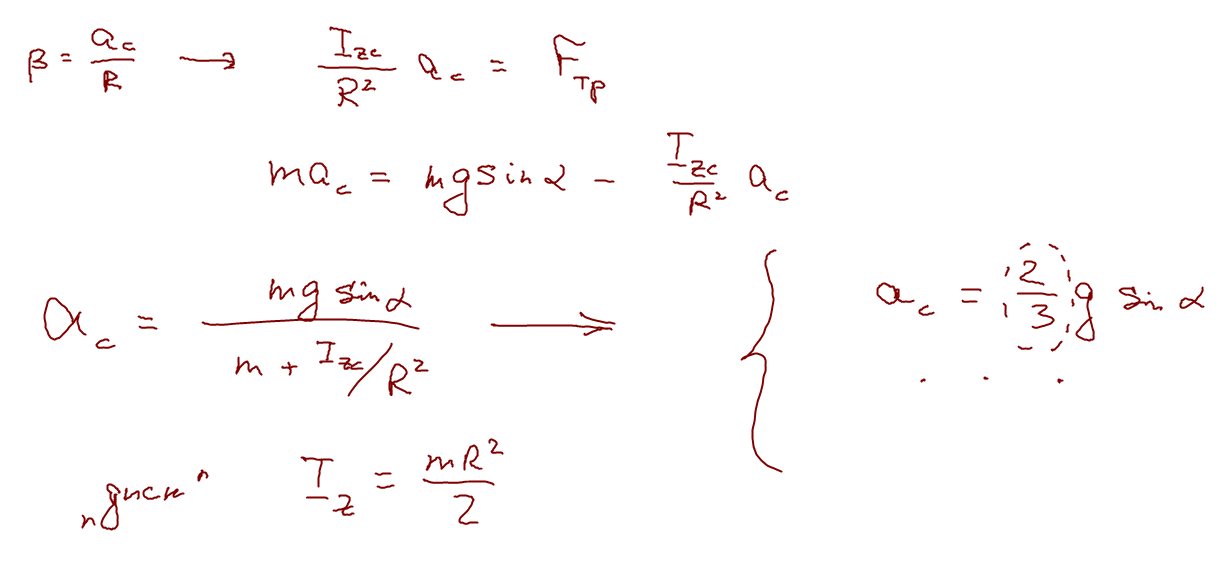 β = a_c / R → I_zc / R² a_c = F_тр
m a_c = mg sin α − I_zc / R² a_c
a_c = mg sin α / (m + I_zc / R²) ⟶ { a_c = 2/3 g sin α
. . .
„диск" I_z = mR² / 2